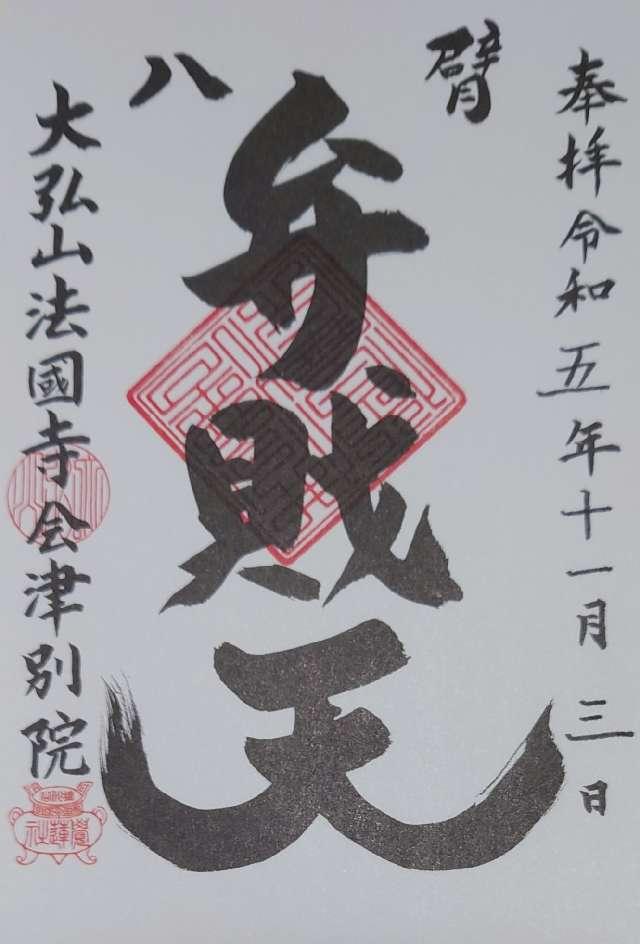 奉拝令和五年十一月三日
八臂
弁財天
大弘山法國寺会津別院